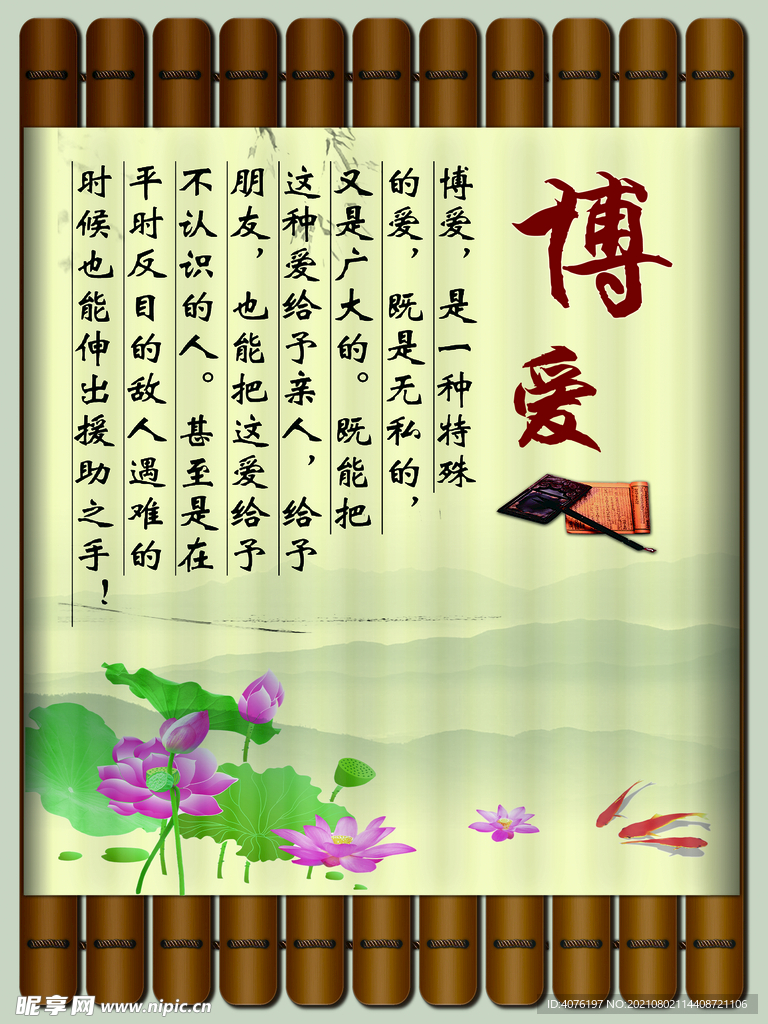 博爱
博爱，是一种特殊
的爱，既是无私的，
又是广大的。既能把
这种爱给予亲人，给予
朋友，也能把这爱给予
不认识的人。甚至是在
平时反目的敌人遇难的
时候也能伸出援助之手！
昵享网 www.nipic.cn
ID:4076197 NO:20210802114408721106